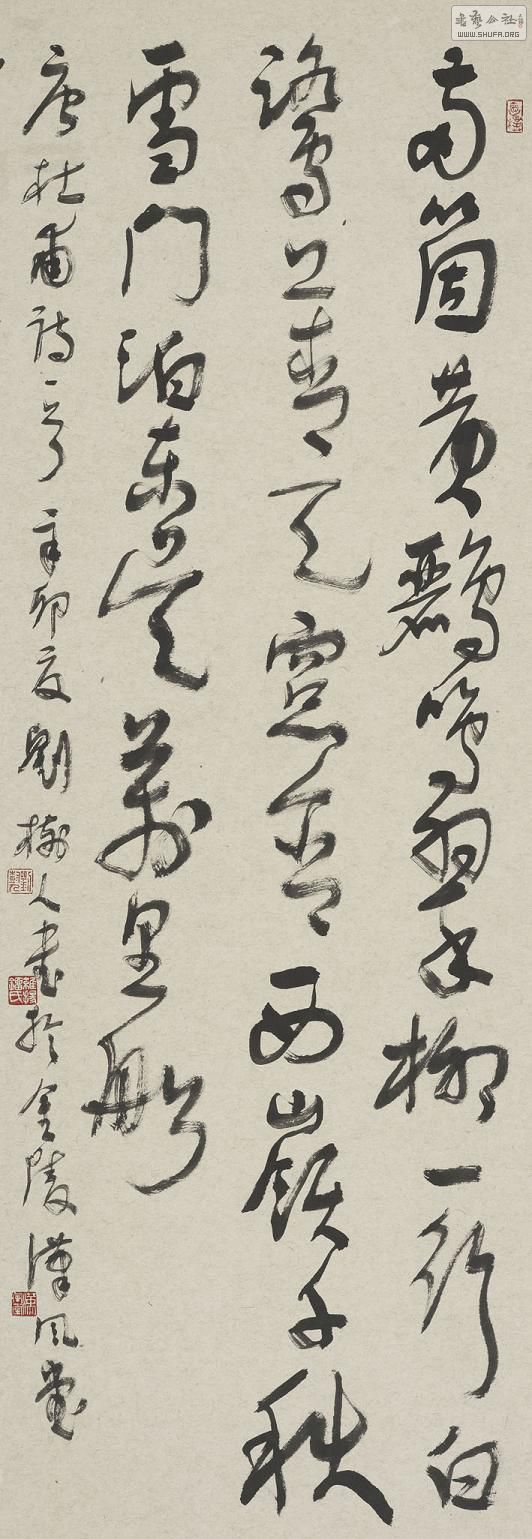 兩箇黃鸝鳴翠柳一行白
鷺上青天窓含西嶺千秋
雪門泊東吳萬里船
唐杜甫詩一首辛卯夏劉人書於金陵漢風堂
書藝公社
WWW.SHUFA.ORG